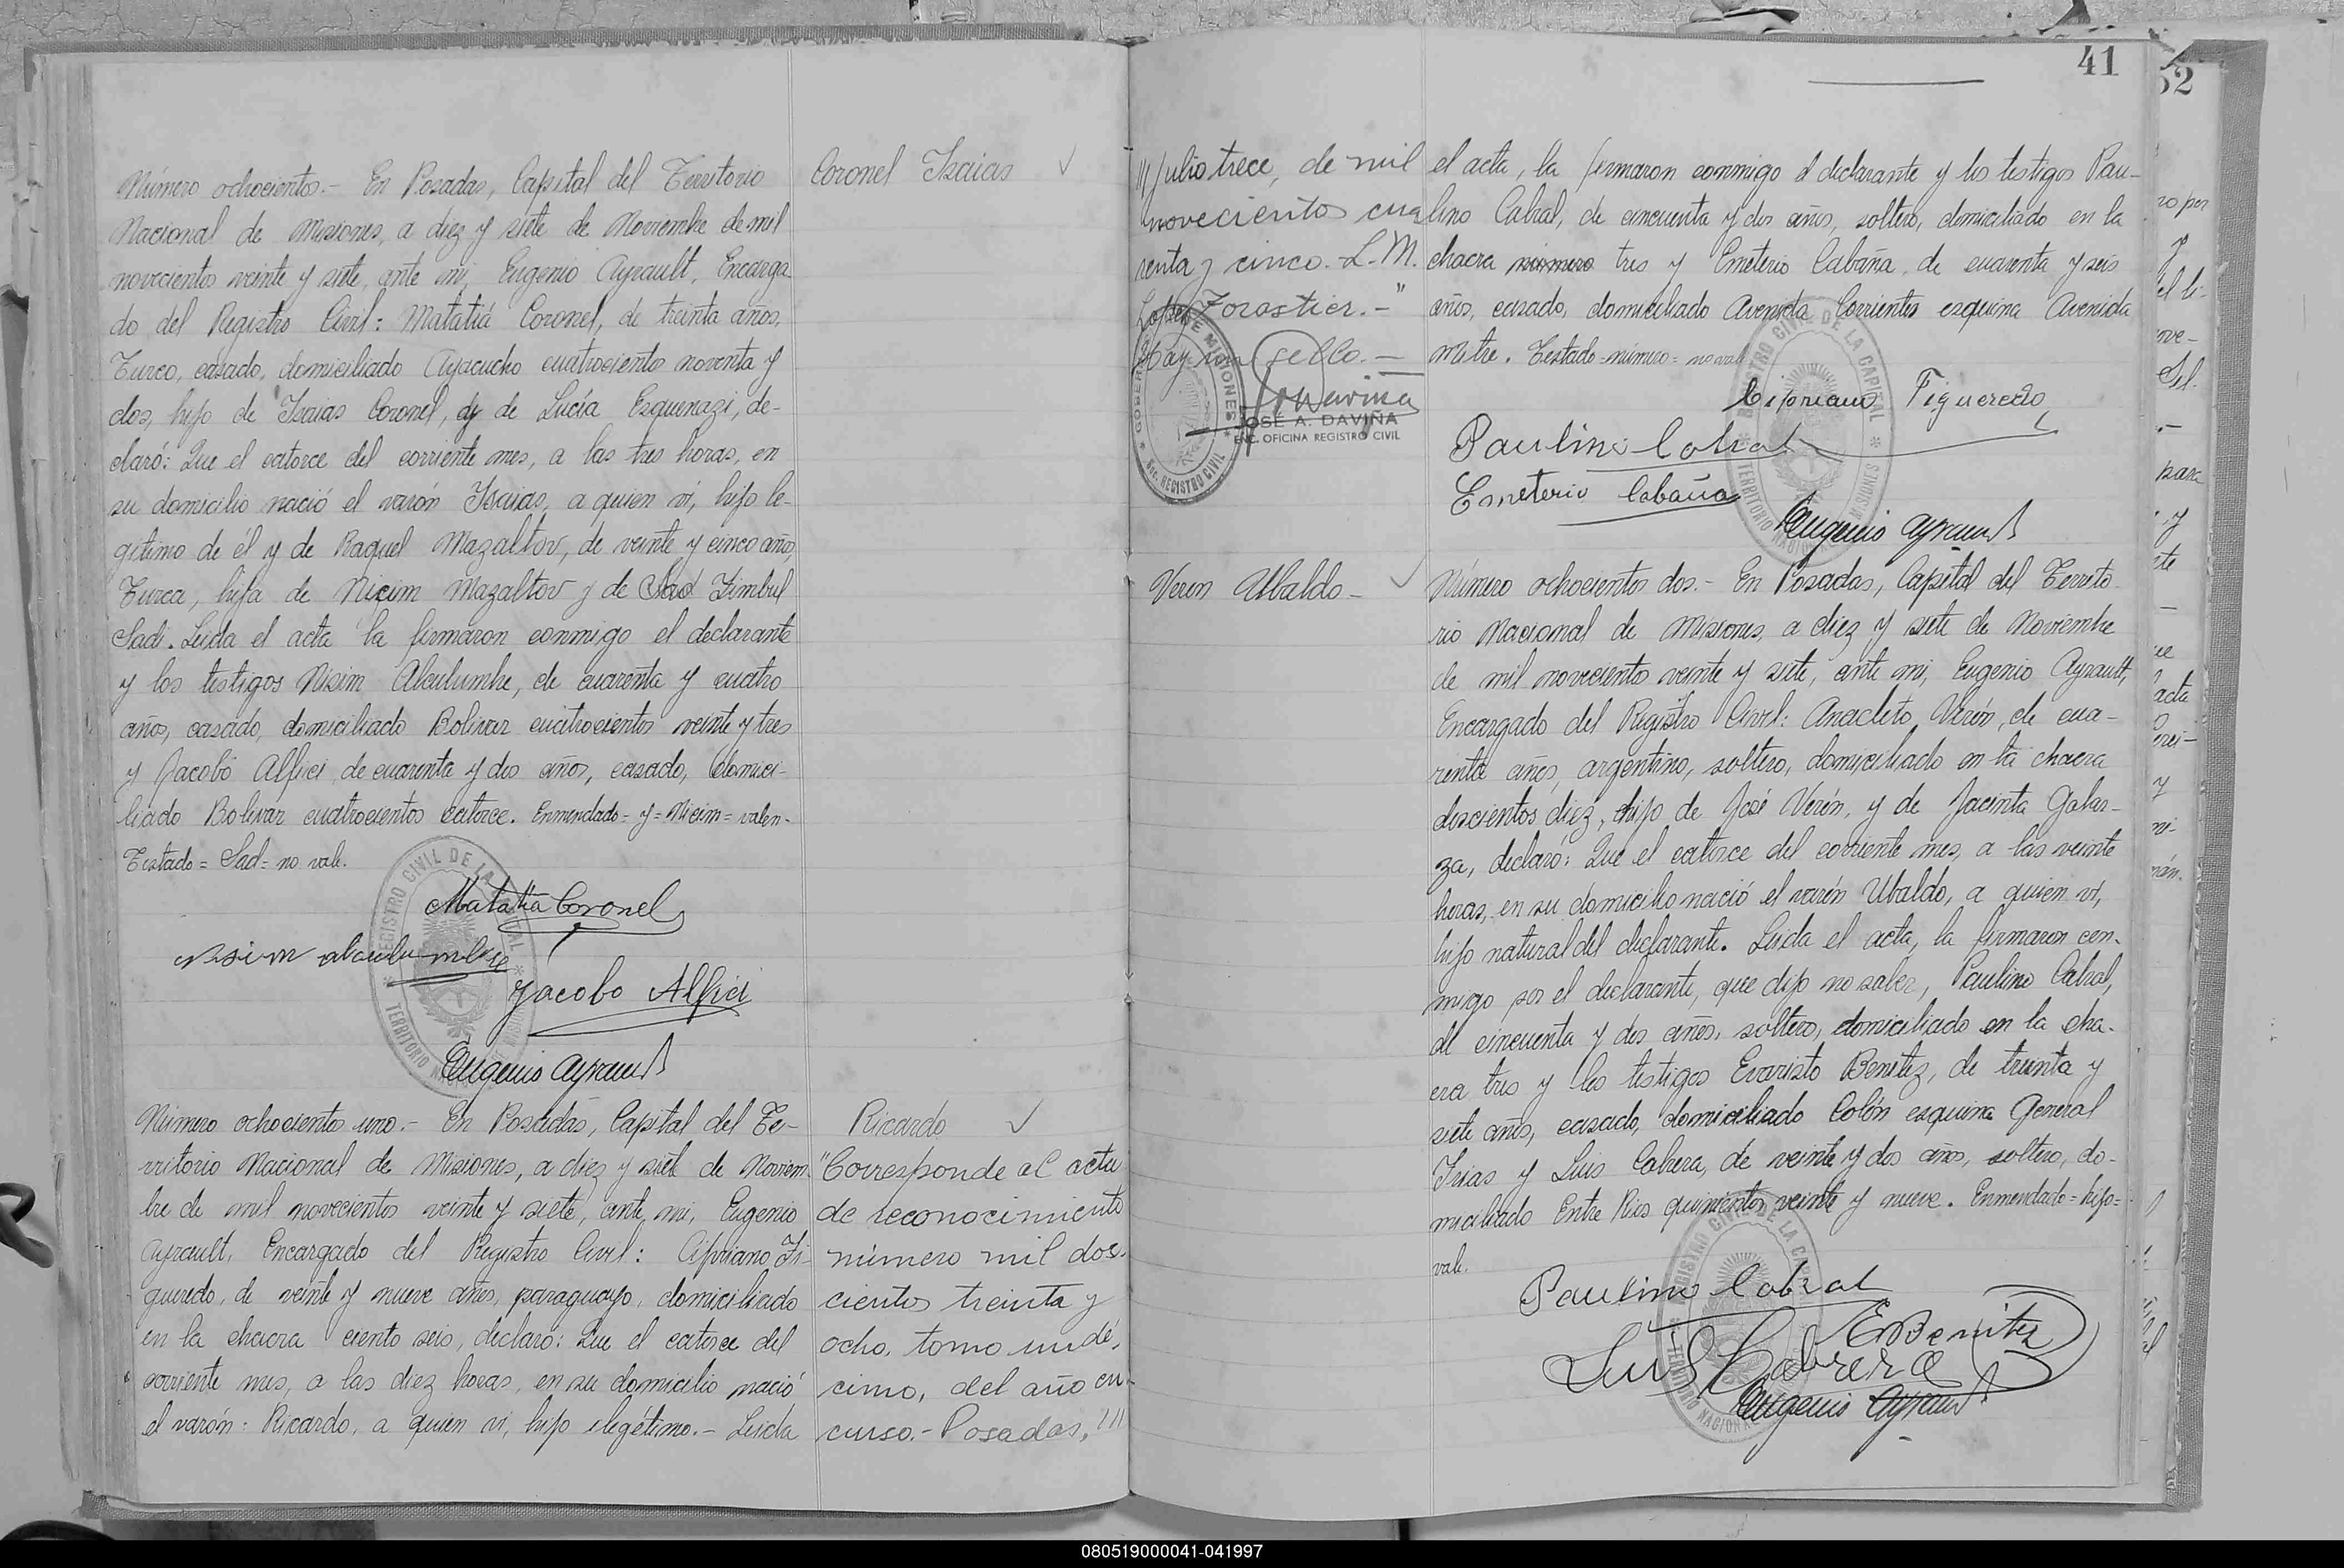 Número ochocientos.- En Posadas, Capital del Territorio
Nacional de Misiones, a diez y siete de Noviembre de mil
novecientos veinte y siete, ante mi, Eugenio Ayrault, Encarga
do del Registro Civil: Matatiá Coronel, de treinta años,
Turco, casado, domiciliado Ayacucho cuatrocientos noventa y
dos, hijo de Isaias Coronel, y de Lucía Esquenazi, de-
claró: Que el catorce del corriente mes, a las tres horas, en
su domicilio nació el varón Isaias, a quien ví, hijo le-
gítimo de él y de Raquel Mazaltov, de veinte y cinco años,
Turca, hija de Nicim Mazaltov y de Sad Zimbul
Sadi. Leida el acta la firmaron conmigo el declarante
y los testigos Nisim Alculumbre, de cuarenta y cuatro
años, casado, domiciliado Bolivar cuatrocientos veinte y tres
y Jacobo Alfici de cuarenta y dos años, casado, domici-
liado Bolivar cuatrocientos catorce. Enmendado= y= Nicim= valen-
Testado= Sad= no vale.
Matatia Coronel
Nisim alculumbre
Jacobo Alfici
Eugenio Ayrault
Coronel Isaias
Número ochocientos uno.- En Posadas, Capital del Te-
rritorio Nacional de Misiones, a diez y siete de Noviem-
bre de mil novecientos veinte y siete, ante mi, Eugenio
Ayrault, Encargado del Registro Civil: Cipriano Fi-
gueredo, de veinte y nueve años, paraguayo, domiciliado
en la chacra ciento seis, declaró: Que el catorce del
corriente mes, a las diez horas, en su domicilio nació
el varón: Ricardo, a quien ví, hijo ilegítimo.- Leida
Ricardo
"Corresponde al acta
de reconocimiento
número mil dos-
cientos treinta y
ocho, tomo undé-
cimo, del año en
curso.- Posadas, ///
41
52
/// Julio trece, de mil
novecientos cua
renta y cinco. L. M.
Lopez Forastier.-"
Hay un sello.-
JOSÉ A. DAVIÑA
ENC. OFICINA REGISTRO CIVIL
el acta, la firmaron conmigo el declarante y los testigos Pau-
lino Cabral, de cincuenta y dos años, soltero, domiciliado en la
chacra número tres y Emeterio Cabaña, de cuarenta y seis
años, casado, domiciliado Avenida Corrientes esquina Avenida
Mitre. Testado= número= no vale
Cipriano Figueredo
Paulino Cabral
Emeterio Cabaña
Eugenio Ayrault
Veron Ubaldo-
Número ochocientos dos.- En Posadas, Capital del Territo-
rio Nacional de Misiones, a diez y siete de Noviembre
de mil novecientos veinte y siete, ante mi, Eugenio Ayrault,
Encargado del Registro Civil: Anacleto Verón, de cua-
renta años, argentino, soltero, domiciliado en la chacra
doscientos diez, hijo de José Verón, y de Jacinta Galar-
za, declaró: Que el catorce del corriente mes, a las veinte
horas, en su domicilio nació el varón Ubaldo, a quien ví,
hijo natural del declarante. Leida el acta, la firmaron con-
migo por el declarante, que dijo no saber, Paulino Cabral,
de cincuenta y dos años, soltero, domiciliado en la cha-
cra tres y los testigos Evaristo Benitez, de treinta y
siete años, casado, domiciliado Colón esquina General
Frias y Luis Cabrera, de veinte y dos años, soltero, do-
miciliado Entre Rios quinientos veinte y nueve. Enmendado= hijo=
vale.
Paulino Cabral
E Benitez
Luis Cabrera
Eugenio Ayrault
080519000041-041997